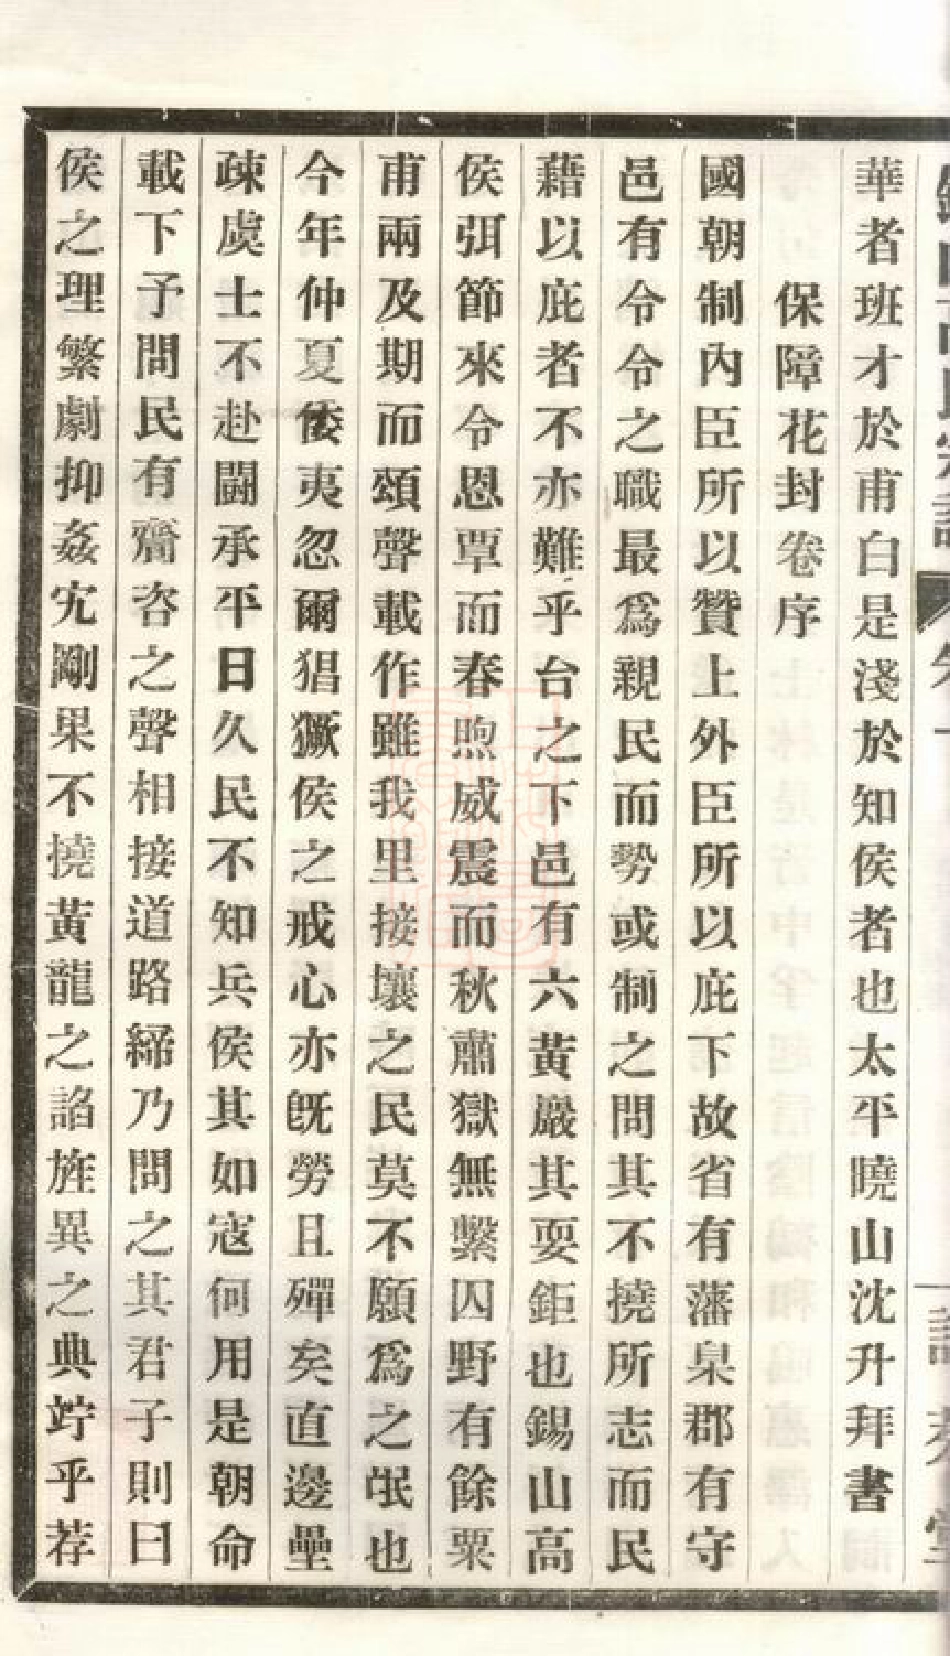 華者班才於甫白是淺於知侯者也太平曉山沈升拜書
保障花封卷序
國朝制內臣所以贊上外臣所以庇下故省有藩臬郡有守
邑有令令之職最爲親民而勢或制之問其不撓所志而民
藉以庇者不亦難乎台之下邑有六黃巖其耍鉅也錫山高
侯弭節來令恩覃而春煦威震而秋肅獄無繫囚野有餘粟
甫兩及期而頌聲載作雖我里接壤之民莫不願爲之氓也
今年仲夏倭夷忽爾猖獗侯之戒心亦旣勞且殫矣直邊壘
疎虞士不赴鬪承平日久民不知兵侯其如寇何用是朝命
載下予問民有齎咨之聲相接道路締乃問之其君子則曰
侯之理繁劇抑姦宄剛果不撓黃龍之諂旌異之典竚乎荐